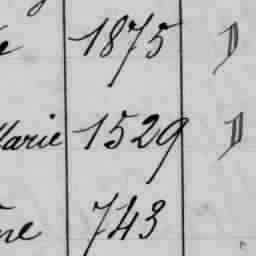 1875 D
Marie 1529 D
743